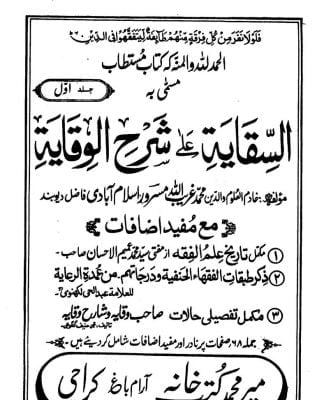 فَلَوْلَا نَفَرَ مِنْ كُلِّ فِرْقَةٍ مِنْهُمْ طَائِفَةٌ لِيَتَفَقَّهُوا فِي الدِّينِ
الحمد للہ والمنہ کہ کتاب مُستطاب
جلد اوّل
مسمّٰی بہ
السِّقَایَة عَلٰی شَرْحِ الْوِقَایَة
مؤلفہ: خادم العلوم والدین محمد غریب اللہ مسرور اسلام آبادی فاضل دیوبند
مع مُفید اضافات
۱ مکمل تاریخ عِلمُ الفِقه از مفتی سید محمد عمیم الاحسان صاحب۔
۲ ذِکر طبقات الفقہاء الحنفیة ودرجاتهم۔ من عُمدة الرعایة
للعلامة عبدالحی لکھنوی
۳ مکمل تفصیلی حالات صاحب وقایه و شارح وقایه
جملہ ۶۸ صفحات پر نادر اور مفید اضافات شامل کر دیئے ہیں۔
میر محمد کتب خانہ آرام باغ کراچی